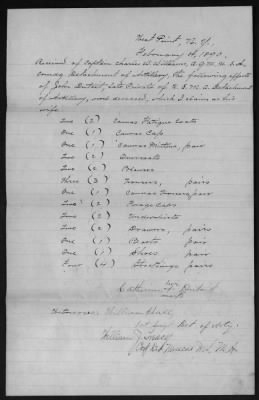 West Point, N. Y.
February 1890.
Received of Captain Charles W. Williams, A.Q.M. U.S.A.
comdg. Detachment of Artillery, the following effects
of John late Private of U.S.M.A. Detachment
of Artillery, now deceased, which I claim as his
wife.
Two (2) Canvas Fatigue Coats
One (1) Canvas Caps
One (1) Canvas Mittens, pair
Two (2) Overcoats
Two (2) Blouses
Three (3) Trousers, pairs
One (1) Canvas Trousers, pair
Two (2) Forage Caps
Two (2) Undershirts
Two (2) Drawers, pairs
One (1) Boots pair
One (1) Shoes pair
Four (4) Stockings pairs
Catherine her
mark
Witnesses: William
1st Sergt. Det. of Arty.
William